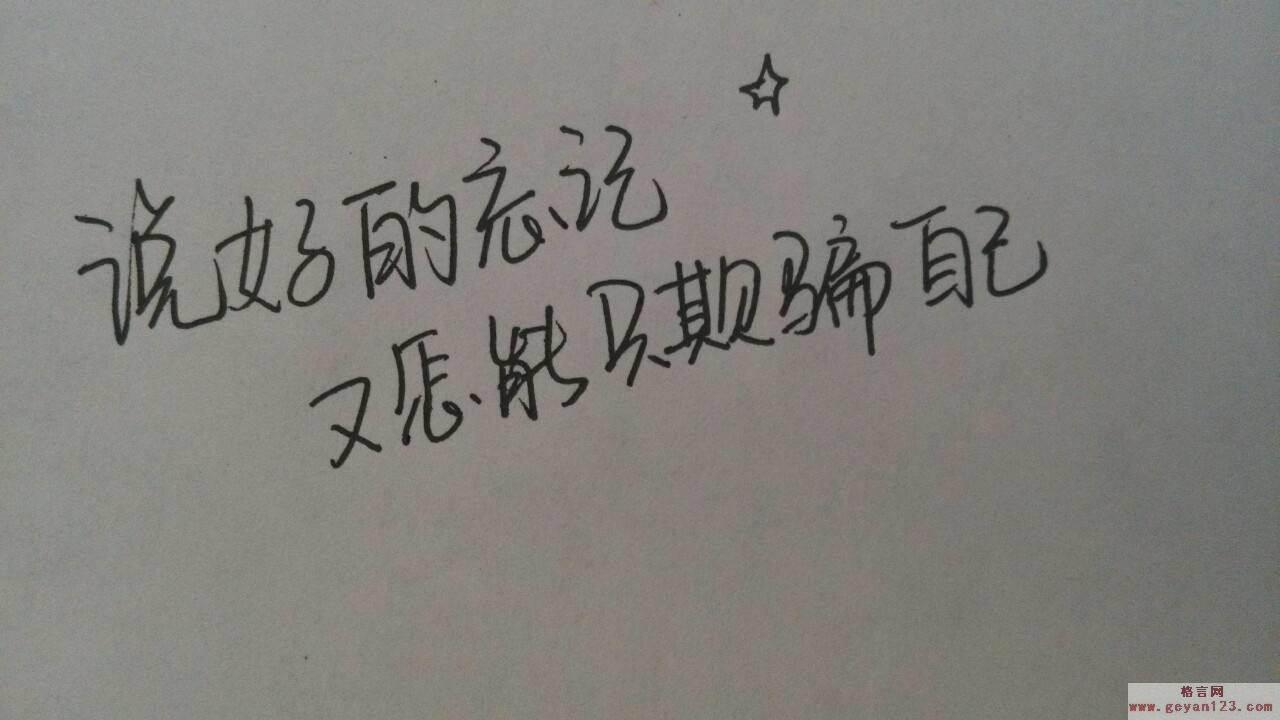 说好的忘记
又怎能只欺骗自己
格言网
www.geyan123.com